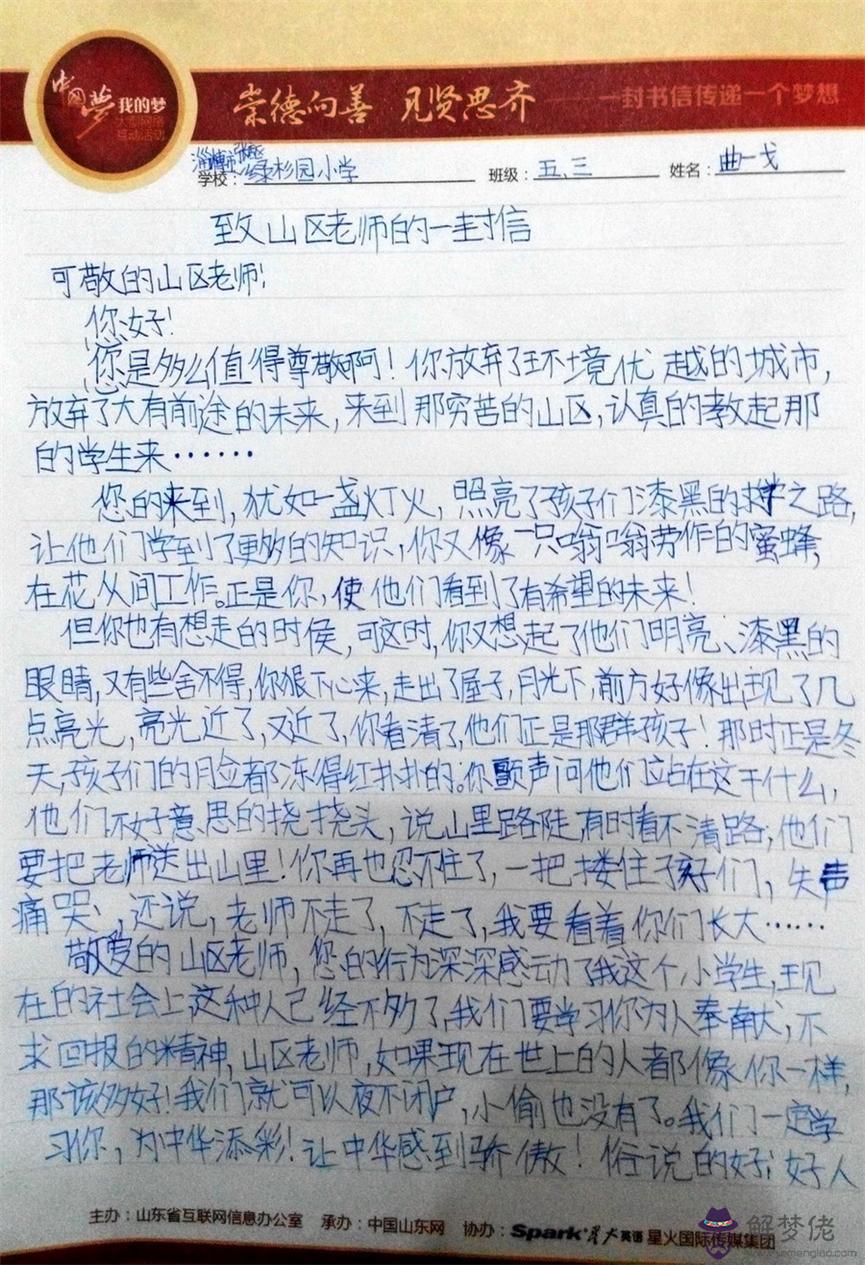 中国梦 我的梦
大型网络
互动活动
崇德向善 见贤思齐 ——一封书信传递一个梦想
学校：淄博市张店绿杉园小学 班级：五、三 姓名：曲一戈
致山区老师的一封信
可敬的山区老师！
您好！
您是多么值得尊敬啊！你放弃了环境优越的城市，
放弃了大有前途的未来，来到那穷苦的山区，认真的教起那
的学生来……
您的来到，犹如一盏灯火，照亮了孩子们漆黑的求学之路，
让他们学到了更多的知识，你又像一只嗡嗡劳作的蜜蜂，
在花丛间工作。正是你，使他们看到了有希望的未来！
但你也有想走的时侯，可这时，你又想起了他们明亮、漆黑的
眼睛，又有些舍不得，你狠下心来，走出了屋子，月光下，前方好像出现了几
点亮光，亮光近了，又近了，你看清了，他们正是那群孩子！那时正是冬
天，孩子们的脸都冻得红扑扑的。你颤声问他们站在这干什么，
他们不好意思的挠挠头，说山里路陡，有时看不清路，他们
要把老师送出山里！你再也忍不住了，一把搂住孩子们，失声
痛哭，还说，老师不走了，不走了，我要看着你们长大……
敬爱的山区老师，您的行为深深感动了我这个小学生，现
在的社会上这种人已经不多了，我们要学习你为人奉献，不
求回报的精神，山区老师，如果现在世上的人都像你一样，
那该多好！我们就可以夜不闭户，小偷也没有了。我们一定学
习你，为中华添彩！让中华感到骄傲！俗说的好：好人
主办：山东省互联网信息办公室 承办：中国山东网 协办：Spark·星火英语 星火国际传媒集团
解梦佬
jiemenglao.com